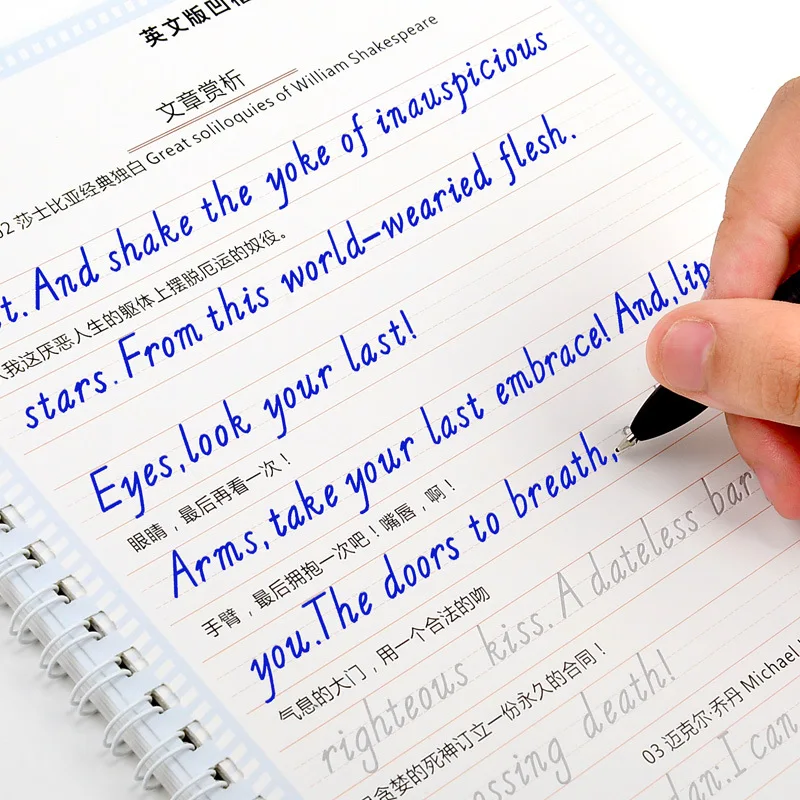 英文版凹
文章赏析
02 莎士比亚经典独白 Great soliloquies of William Shakespeare
And shake the yoke of inauspicious
我这厌恶人生的躯体上摆脱厄运的奴役。
stars. From this world-wearied flesh.
Eyes, look your last!
眼睛，最后再看一次！
Arms, take your last embrace! And, lip
手臂，最后拥抱一次吧！嘴唇，啊！
you. The doors to breath,
气息的大门，用一个合法的吻
righteous kiss. A dateless bar
贪婪的死神订立一份永久的合同！
death!
03 迈克尔·乔丹 Michael
I can